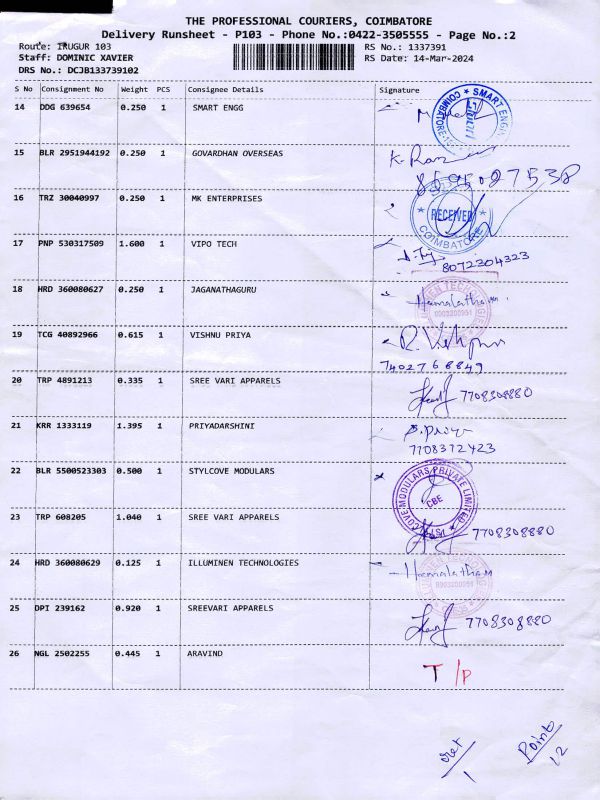 THE PROFESSIONAL COURIERS, COIMBATORE
Delivery Runsheet - P103 - Phone No.:0422-3505555 - Page No.:2
Route: IRUGUR 103 RS No.: 1337391
Staff: DOMINIC XAVIER RS Date: 14-Mar-2024
DRS No.: DCJB133739102
S No Consignment No Weight PCS Consignee Details Signature
14 DDG 639654 0.250 1 SMART ENGG SMART ENGG COIMBATORE
15 BLR 2951944192 0.250 1 GOVARDHAN OVERSEAS
8595027538
16 TRZ 30040997 0.250 1 MK ENTERPRISES RECEIVED COIMBATORE
17 PNP 530317509 1.600 1 VIPO TECH
8072304323
18 HRD 360080627 0.250 1 JAGANATHAGURU Hemalatha
19 TCG 40892966 0.615 1 VISHNU PRIYA
7402768849
20 TRP 4891213 0.335 1 SREE VARI APPARELS 7708308880
21 KRR 1333119 1.395 1 PRIYADARSHINI S.priya
7708372423
22 BLR 5500523303 0.500 1 STYLCOVE MODULARS COVE MODULARS PRIVATE LIMITED CBE
23 TRP 608205 1.040 1 SREE VARI APPARELS 7708308880
24 HRD 360080629 0.125 1 ILLUMINEN TECHNOLOGIES Hemalatha
25 DPI 239162 0.920 1 SREEVARI APPARELS 7708308880
26 NGL 2502255 0.445 1 ARAVIND T/P
Point
12
1